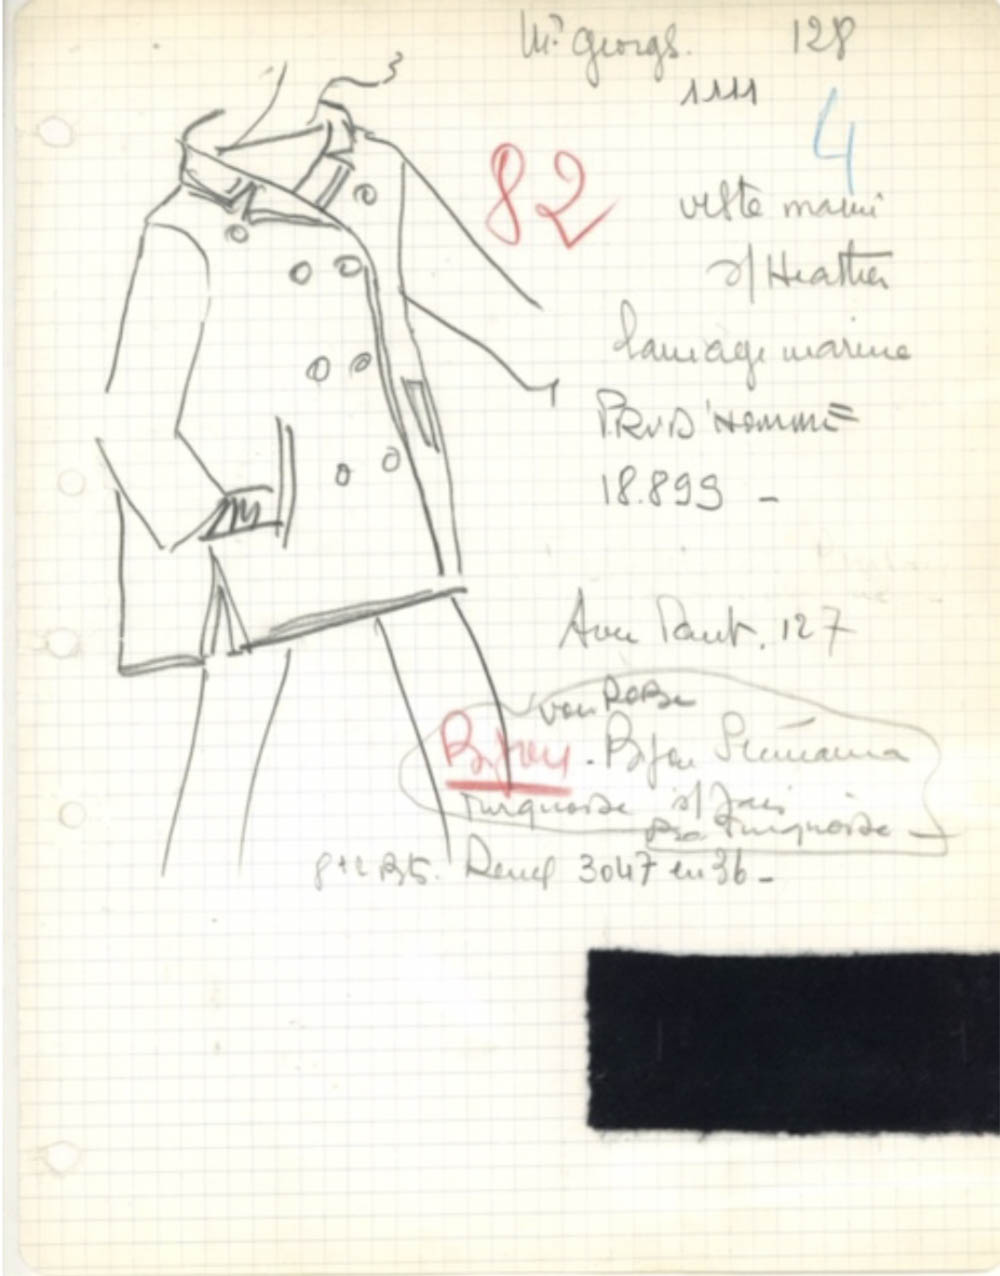 Mr Georgs. 128
1111
4
82
veste marin
s/ Heather
lainage marine
PRUD'HOMME
18.899 -
Avec Pant. 127
voir ROBE
Bijou. Bijou
turquoise s/ Jais
turquoise
3047 en 36 -